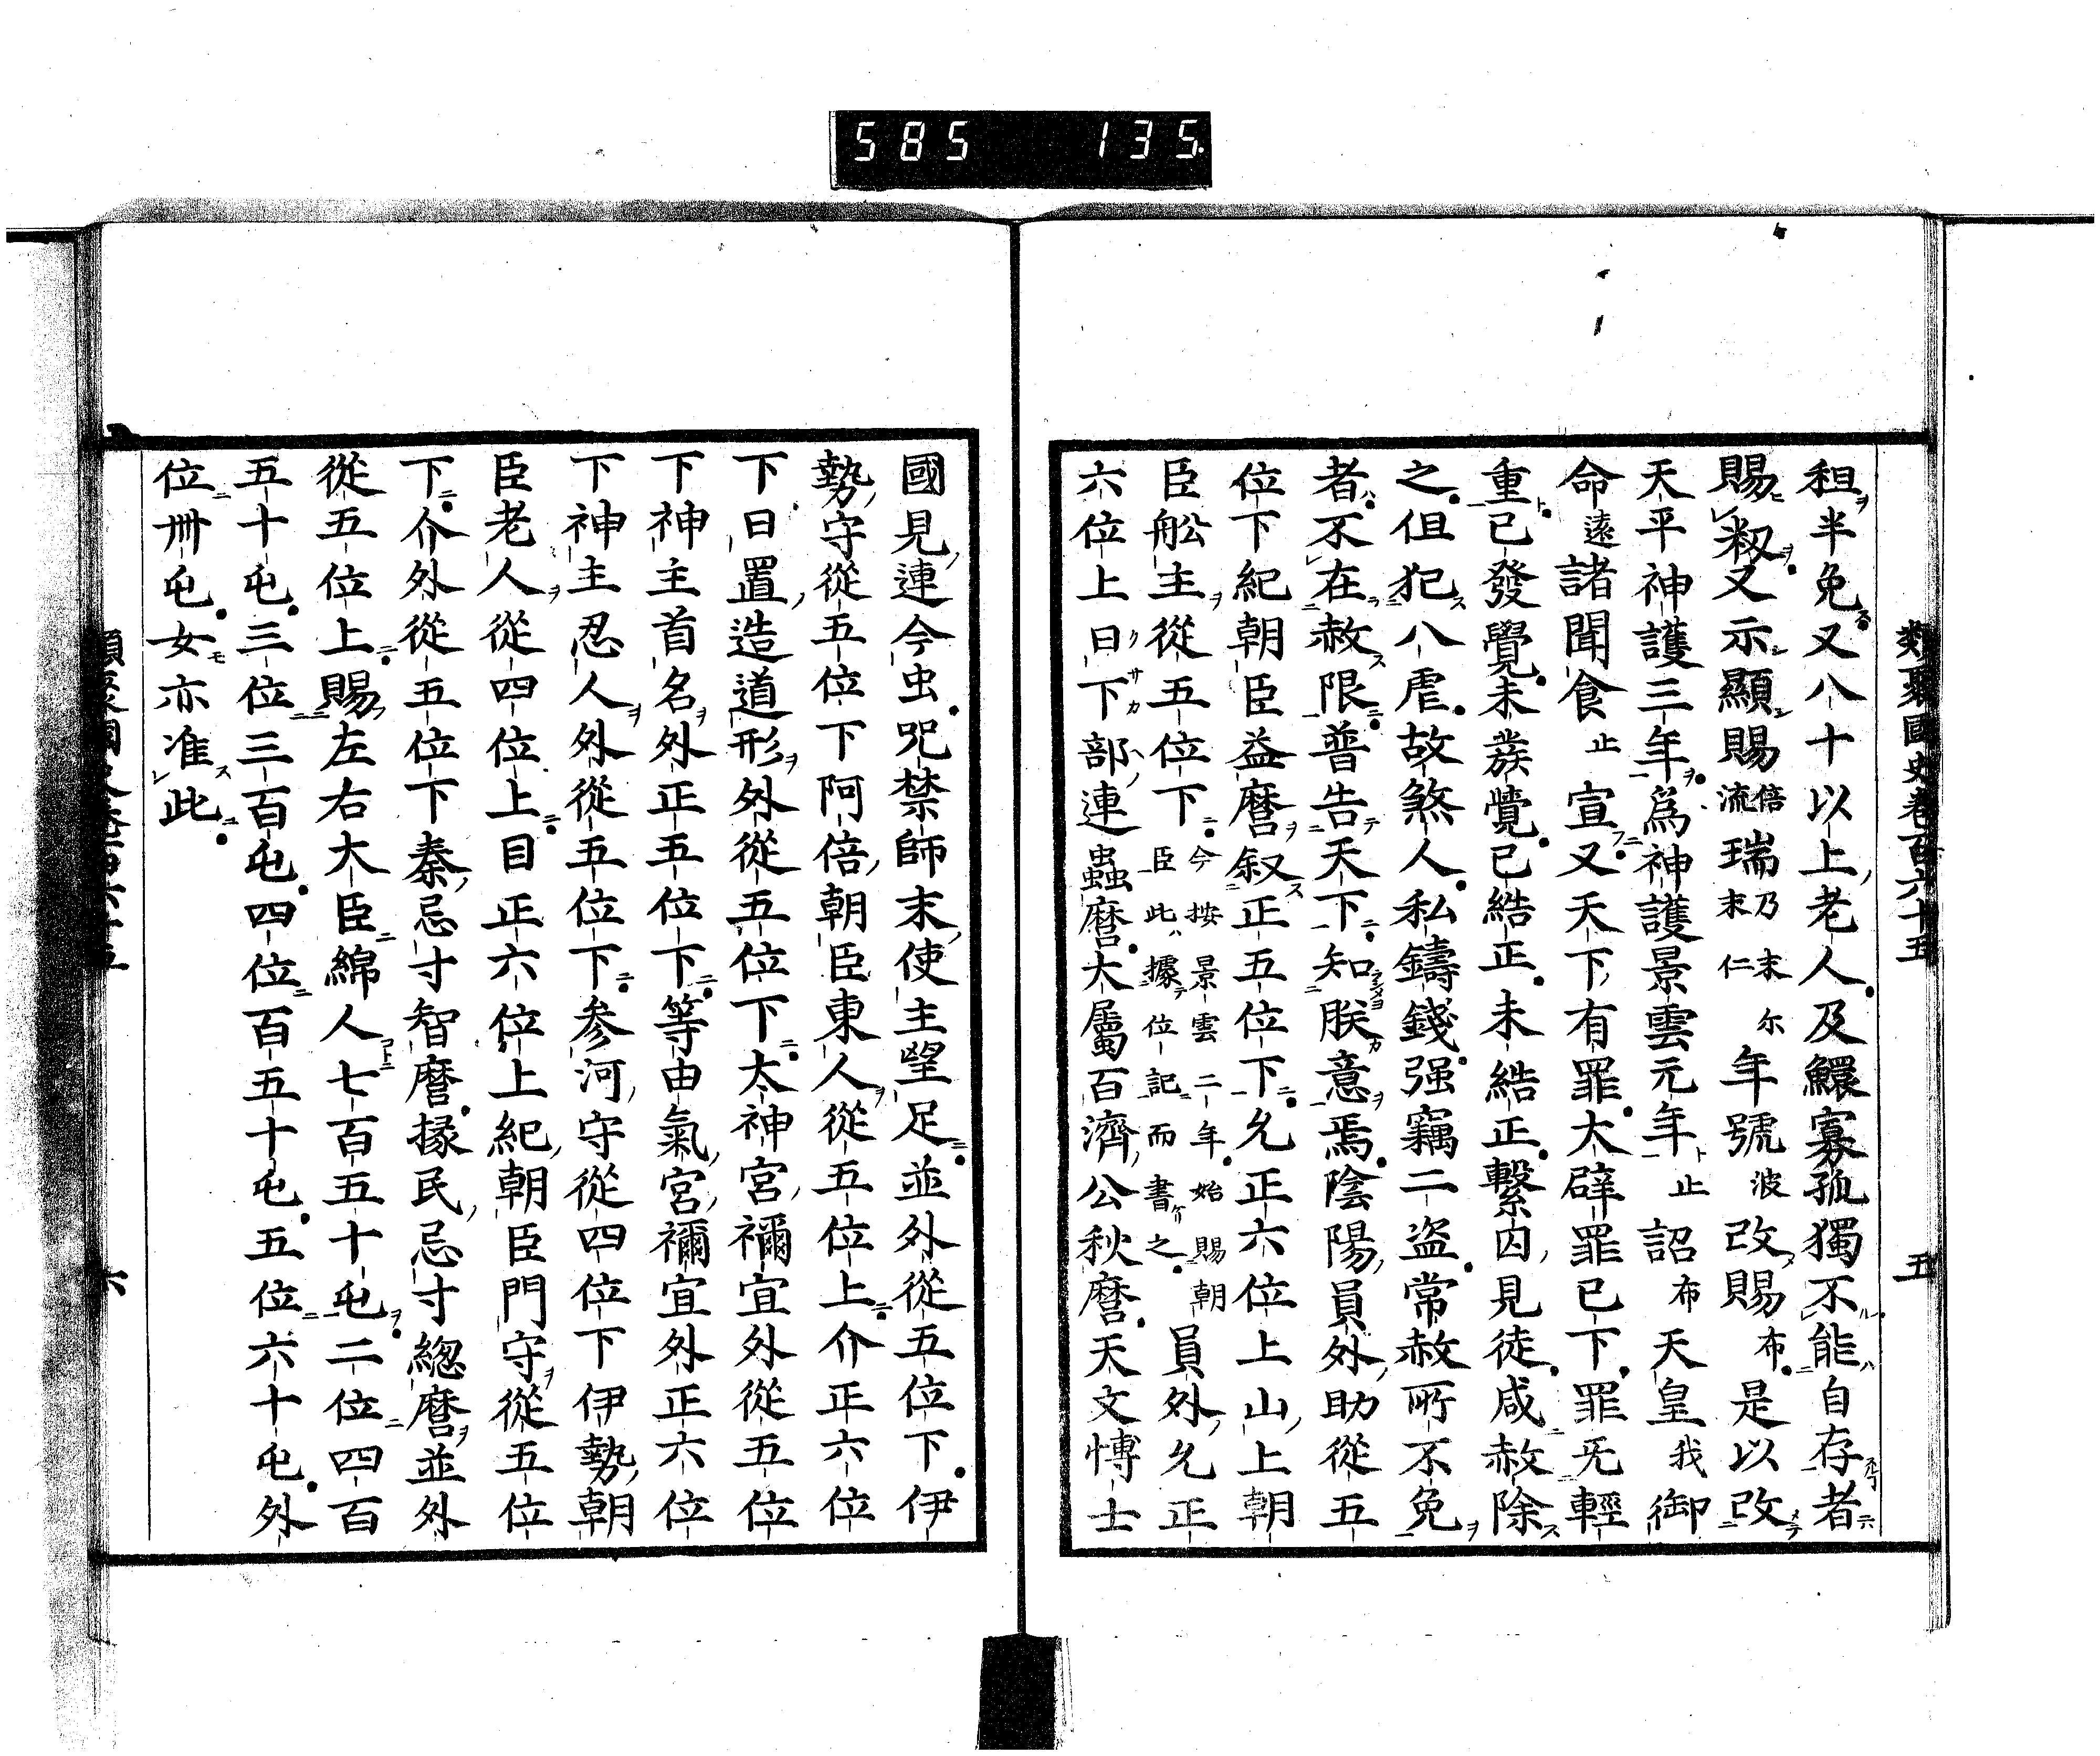 585 135
類聚國史卷百六十五 五
租半免又八十以上老人及鰥寡孤獨不能自存者
賜籾又示顯賜流倍瑞末乃仁末尓年號波改賜布是以改
天平神護三年爲神護景雲元年止詔布天皇我御
命遠諸聞食止宣又天下有罪大辟罪已下罪旡輕
重已發覺未發覺已結正未結正繫囚見徒咸赦除
之但犯八虐故煞人私鑄錢强竊二盜常赦所不免
者不在赦限普告天下知朕意焉陰陽員外助從五
位下紀朝臣益麿叙正五位下允正六位上山上朝
臣舩主從五位下今按景雲二年始賜朝臣此據位記而書之員外允正
六位上日下部連蟲麿大屬百濟公秋麿天文博士
國見連今虫咒禁師末使主望足並外從五位下伊
勢守從五位下阿倍朝臣東人從五位上介正六位
下日置造道形外從五位下太神宮禰宜外從五位
下神主首名外正五位下等由氣宮禰宜外正六位
下神主忍人外從五位下参河守從四位下伊勢朝
臣老人從四位上目正六位上紀朝臣門守從五位
下介外從五位下秦忌寸智麿掾民忌寸總麿並外
從五位上賜左右大臣綿人七百五十屯二位四百
五十屯三位三百屯四位百五十屯五位六十屯外
位卅屯女亦准此
六